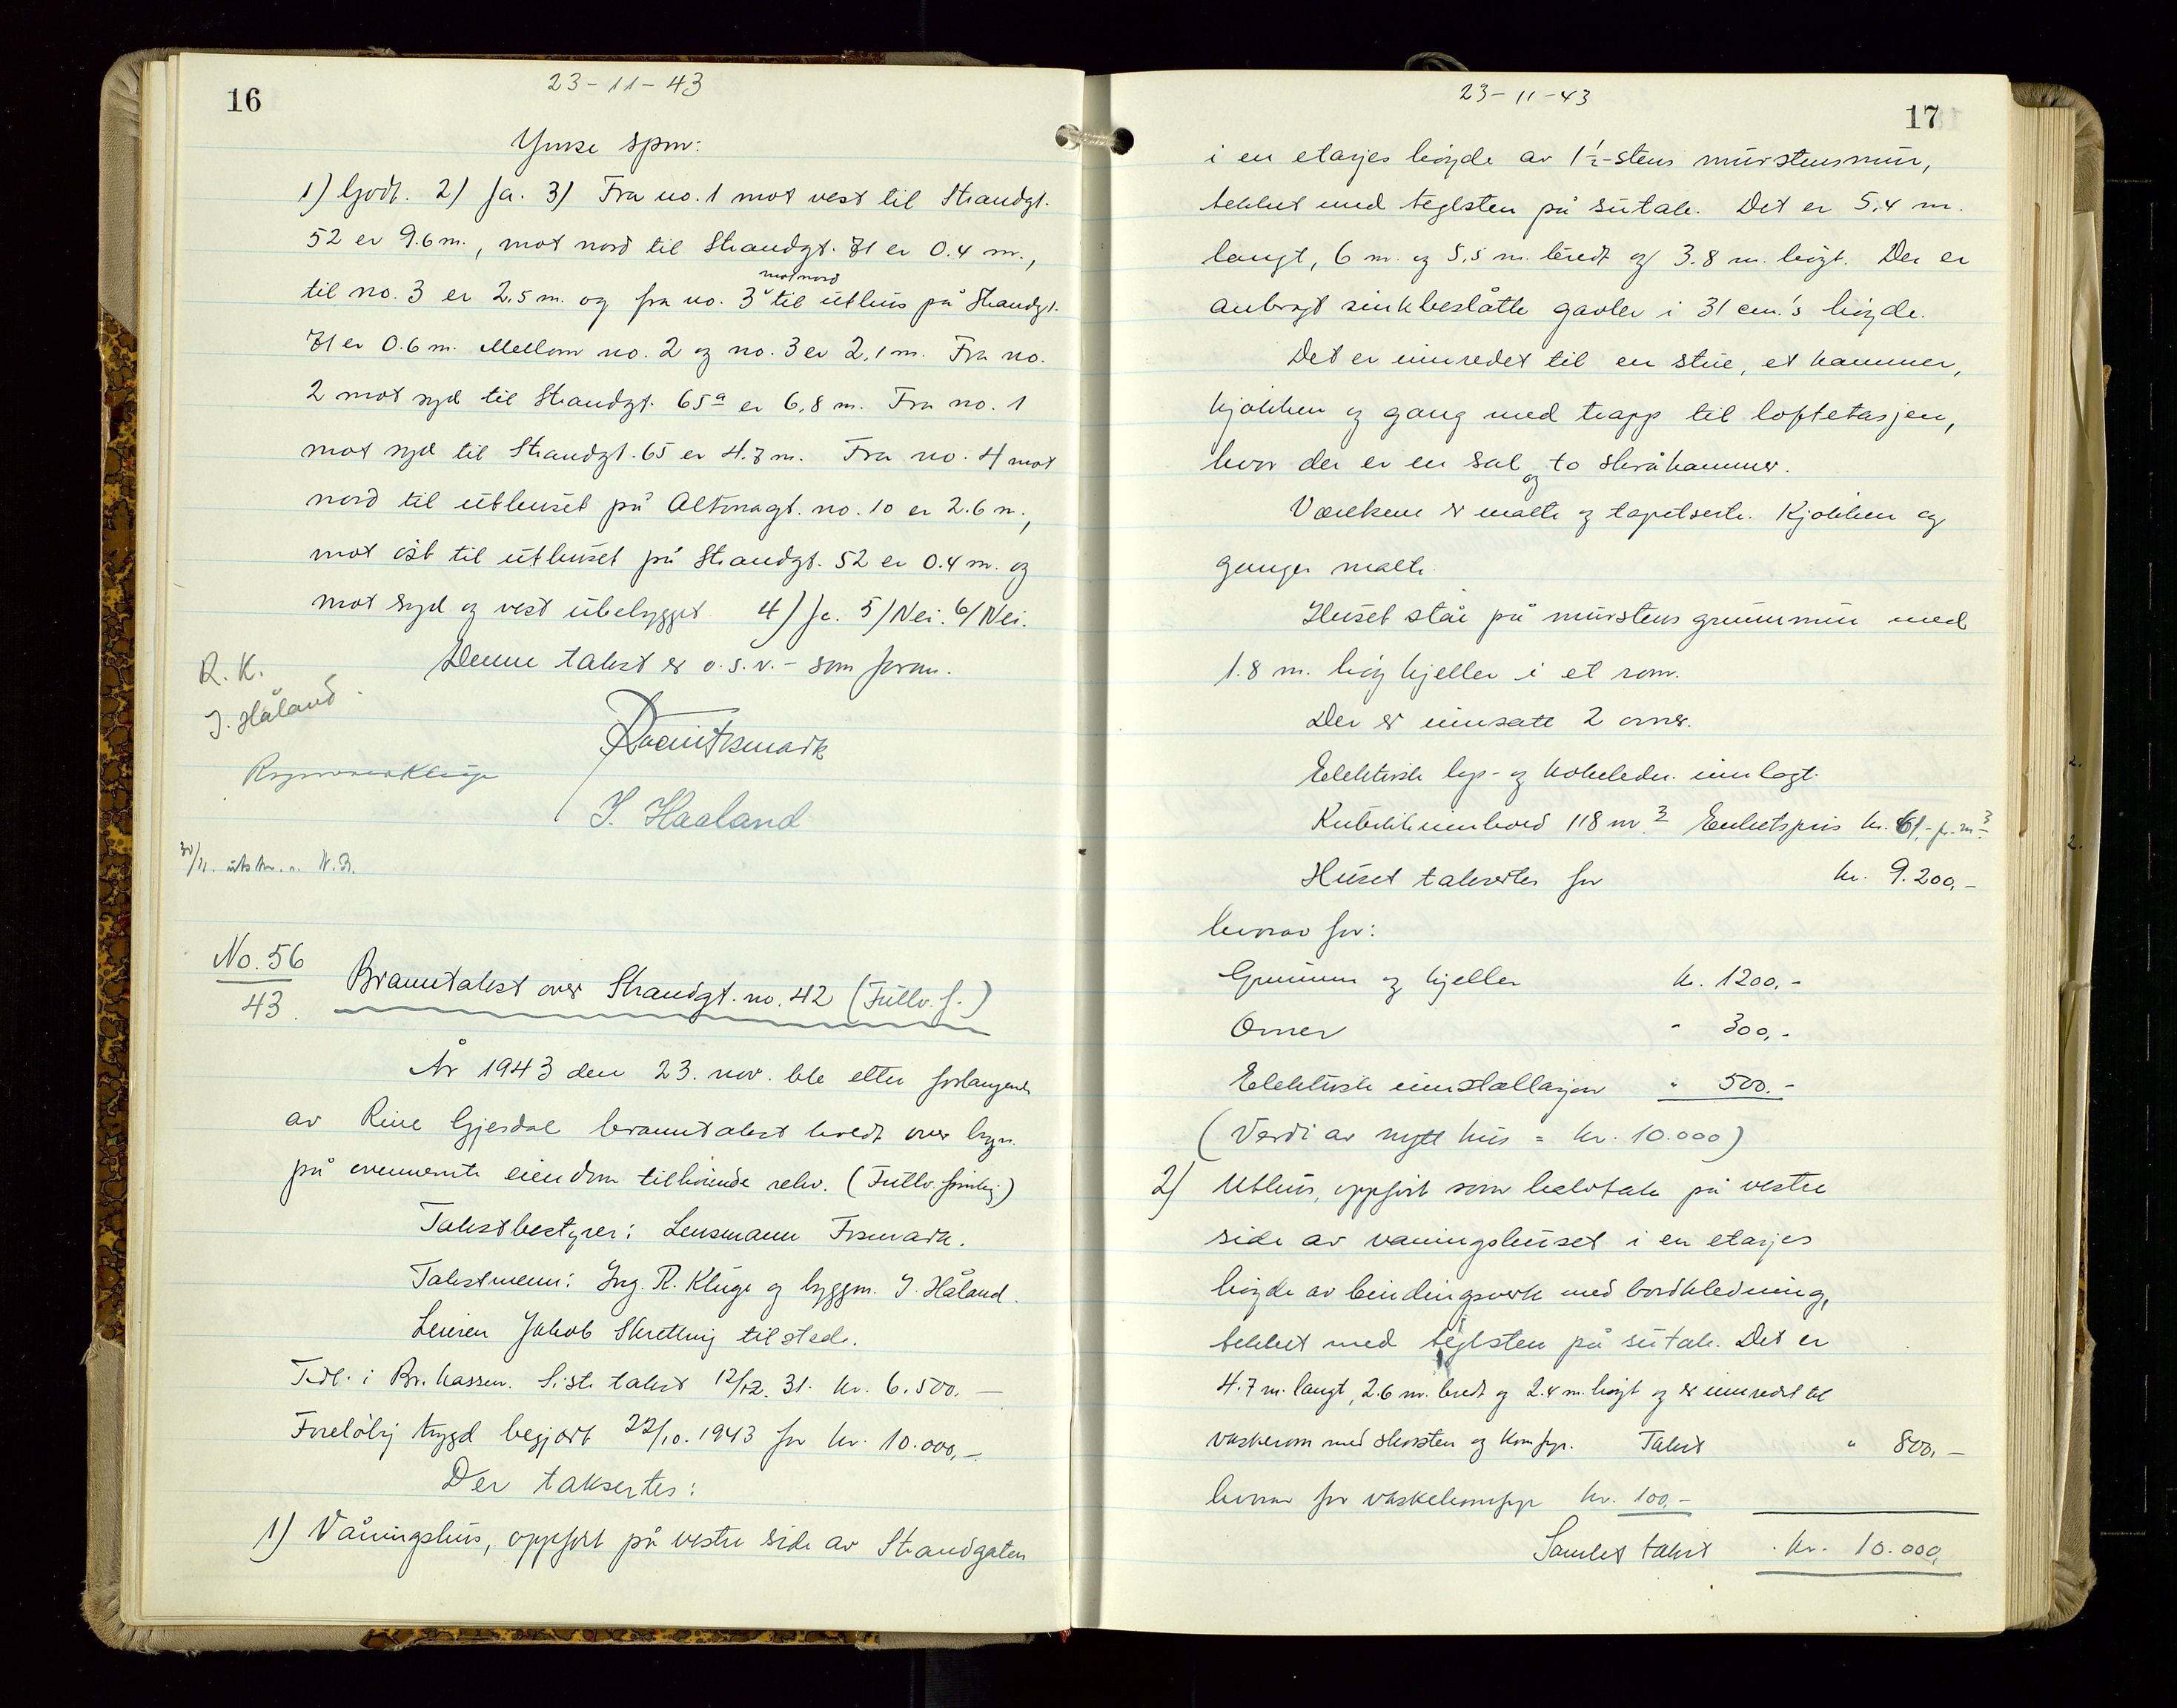 16
23-11-43
Ymse spm:
1) Godt. 2) Ja. 3) Fra no. 1 mot vest til Strandgt.
52 er 9.6 m., mot nord til Strandgt. 71 er 0.4 m.,
mot nord
til no. 3 er 2,5 m. og fra no. 3 til uthus på Strandgt.
71 er 0.6 m. Mellom no. 2 og no. 3 er 2,1 m. Fra no.
2 mot syd til Strandgt. 65a er 6,8 m. Fra no. 1
mot syd til Strandgt. 65 er 4.7 m. Fra no. 4 mot
nord til uthuset på Altonagt. no. 10 er 2.6 m.,
mot öst til uthuset på Strandgt. 52 er 0.4 m. og
mot syd og vest ubebygget. 4) Ja. 5) Nei. 6) Nei.
Denne takst er o.s.v. - som foran.
R. K.
J. Håland.
J. Haaland
30/11. utskr. N.B.
No. 56
43.
Branntakst over Strandgt. no. 42 (Fullv. f.)
År 1943 den 23. nov. ble etter forlangende
av Rine Gjesdal branntakst holdt over bygn.
på ovennemnte eiendom tilhörende rekv. (Fullv. forsikr.)
Takstbestyrer: Lensmann Fosmark.
Takstmenn: Ing. R. Kluge og byggm. J. Håland.
Leieren Jakob Skretting tilstede.
Tidl. i Br. kassen. Siste takst 12/12. 31. kr. 6.500.-
Forelöbig trygd begjært 22/10. 1943 for kr. 10.000,-.
Der taksertes:
1) Våningshus, oppfört på vestre side av Strandgaten
17
23-11-43
i en etasjes höyde av 1½-stens murstensmur,
tekket med teglsten på sutak. Det er 5,4 m.
langt, 6 m. og 5,5 m. bredt og 3.8 m. höyt. Der er
anbragt sinkbeslåtte gavler i 31 cm.'s höyde.
Det er innredet til en stue, et kammer,
kjökken og gang med trapp til loftetasjen,
hvor der er en sal og to skråkammer.
Værelsene er malte og tapetserte. Kjökken og
ganger malte.
Huset står på murstens grunnmur med
1.8 m. höy kjeller i et rom.
Der er innsatt 2 ovner.
Elektrisk lys- og kokeledn. innlagt.
Kubikkinnhold 118 m3 Enhetspris kr. 61,- pr. m3
Huset takseres for kr. 9.200,-
hvorav for:
Grunnm og kjeller kr. 1200,-
Ovner " 300,-
Elektrisk innstallasjon " 500.-
(Verdi av nytt hus = kr. 10.000)
2) Uthus, oppfört som halvtak på vestre
side av vaningshuset i en etasjes
höyde av bindingsverk med bordkledning,
tekket med teglsten på sutak. Det er
4.7 m. langt, 2.6 m. bredt og 2.4 m. höyt og er innredet til
vaskerom med skorsten og komfyr. Takst " 800,-
hvorav for vaskekomfyr kr. 100,-
Samlet takst kr. 10.000,